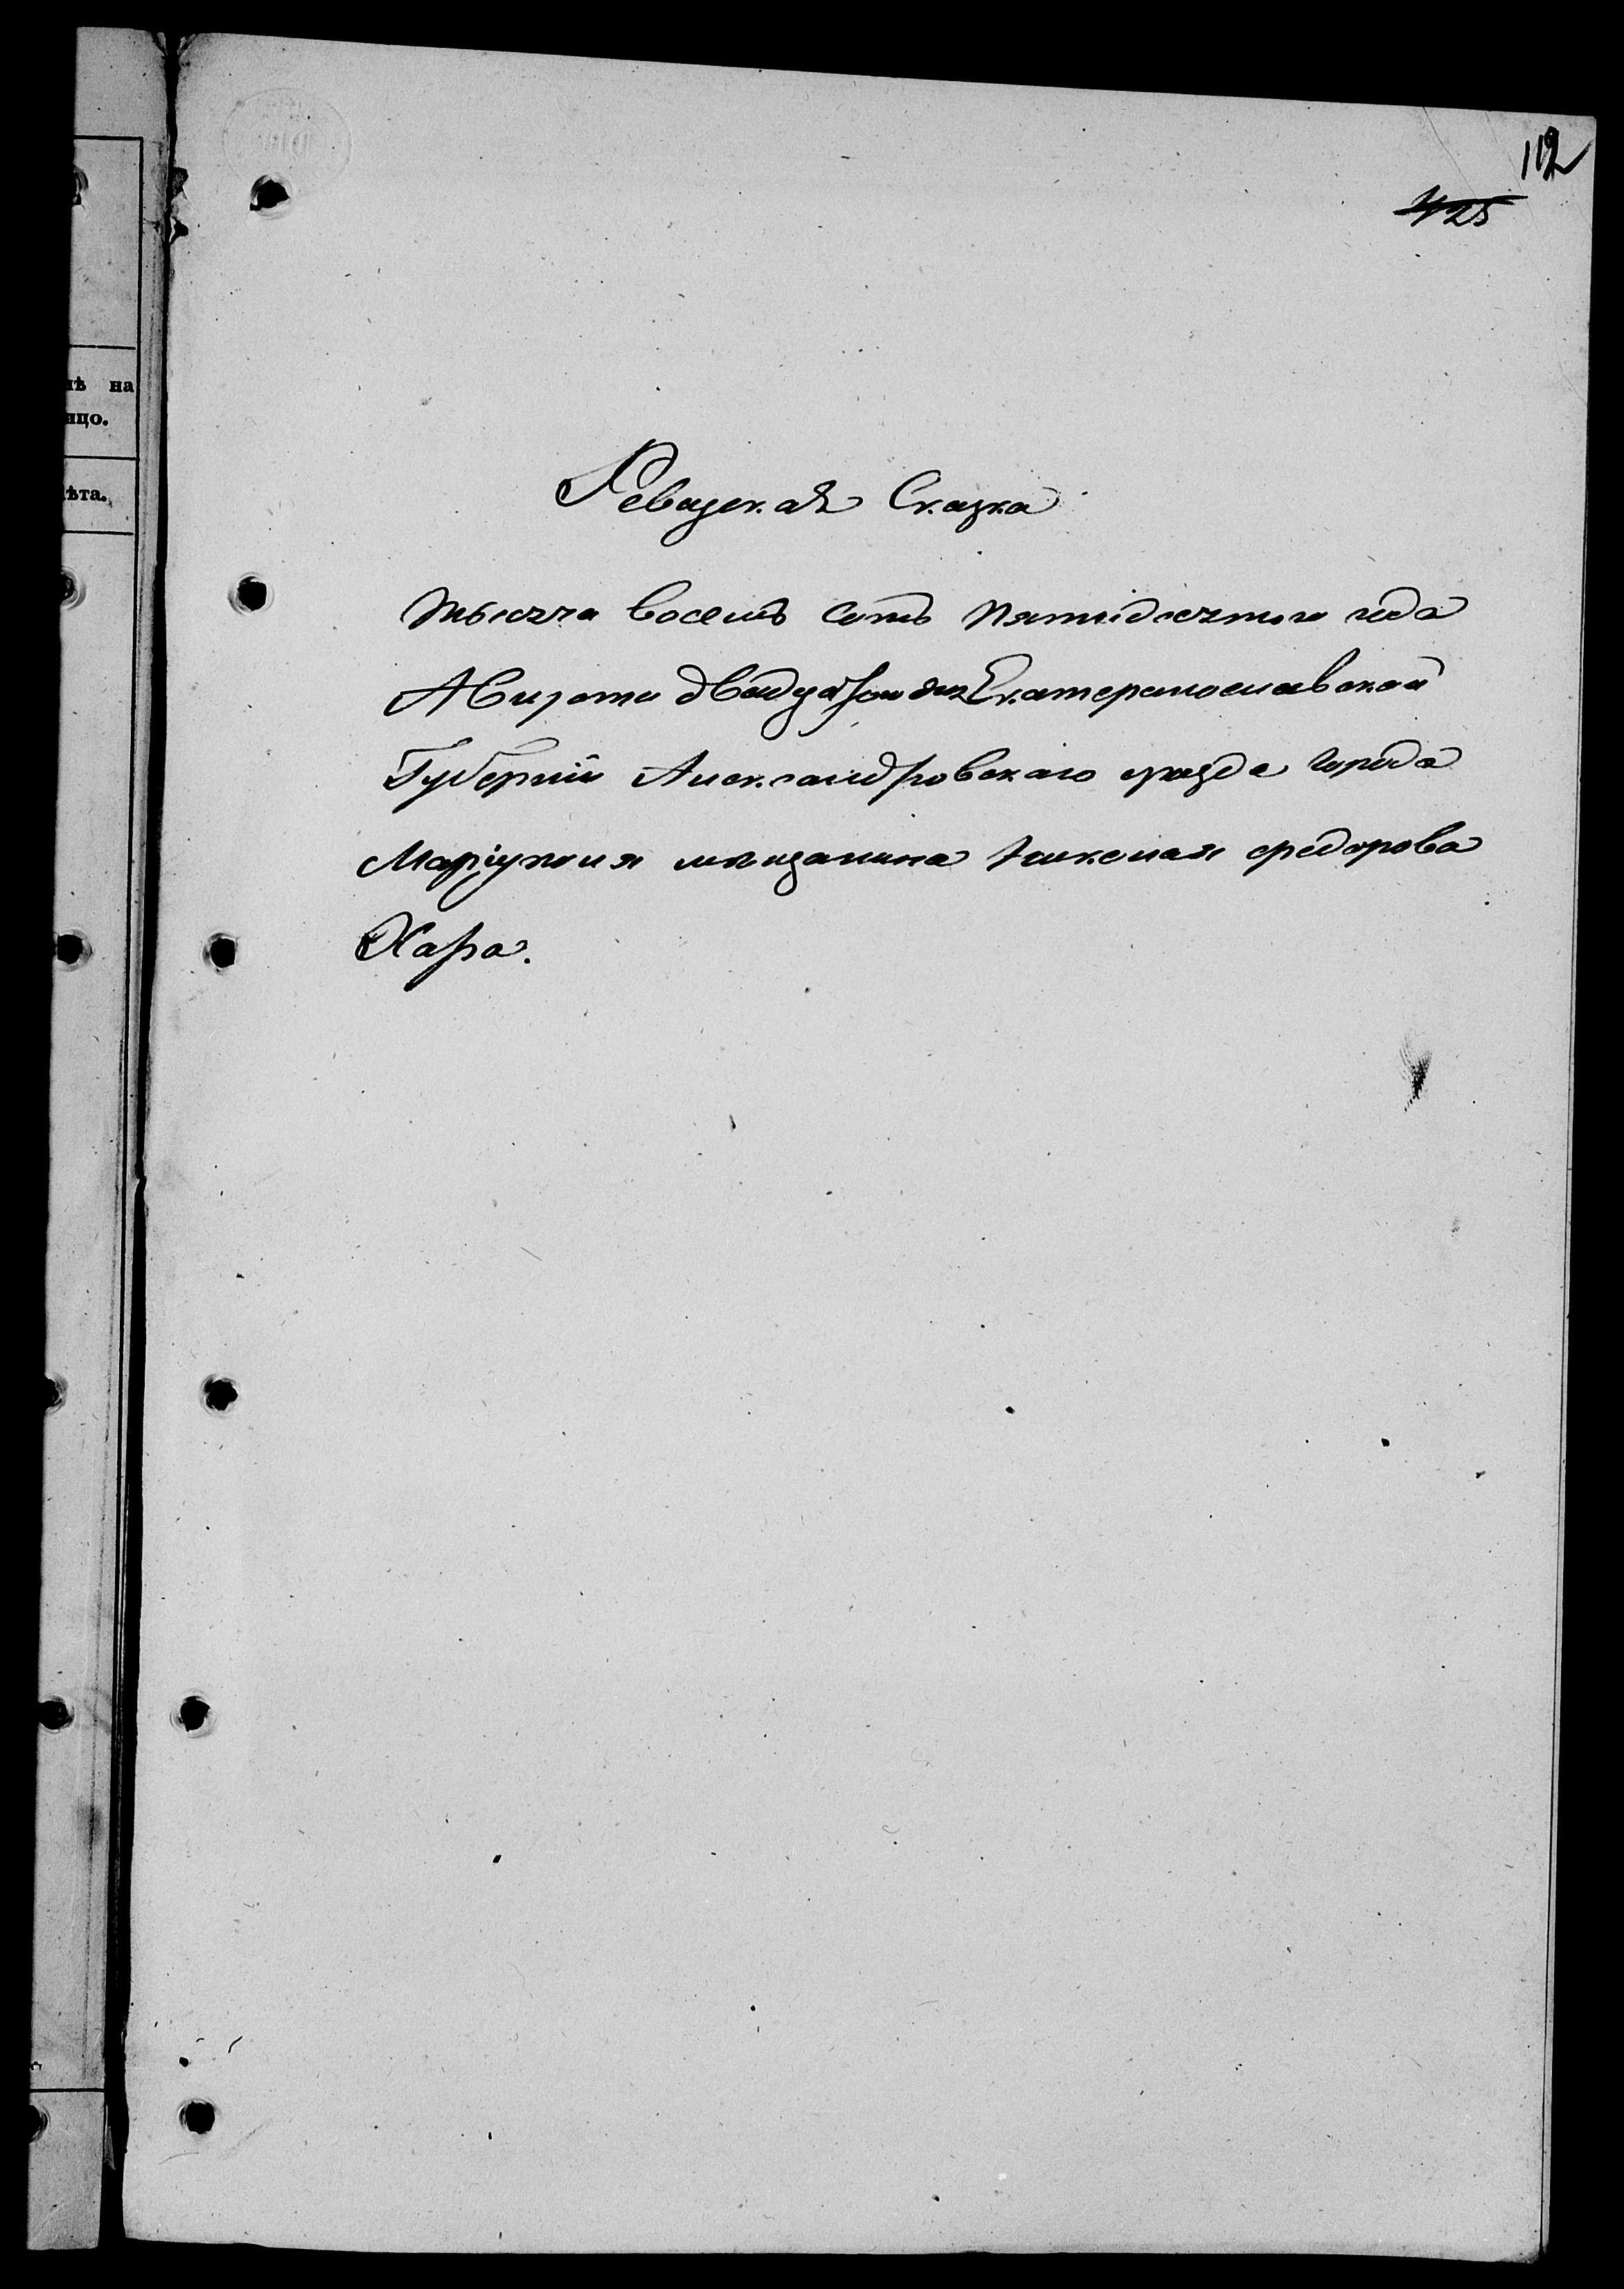 112
425
нѣ на
ицо.
лѣта.
Ревизская Сказка
тысяча восемь сотъ пятидесятого года
Августа двадцатого дня Екатеринославской
Губерніи Александровскаго уезда города
Маріуполя мещанина Николая Федорова
Хара.